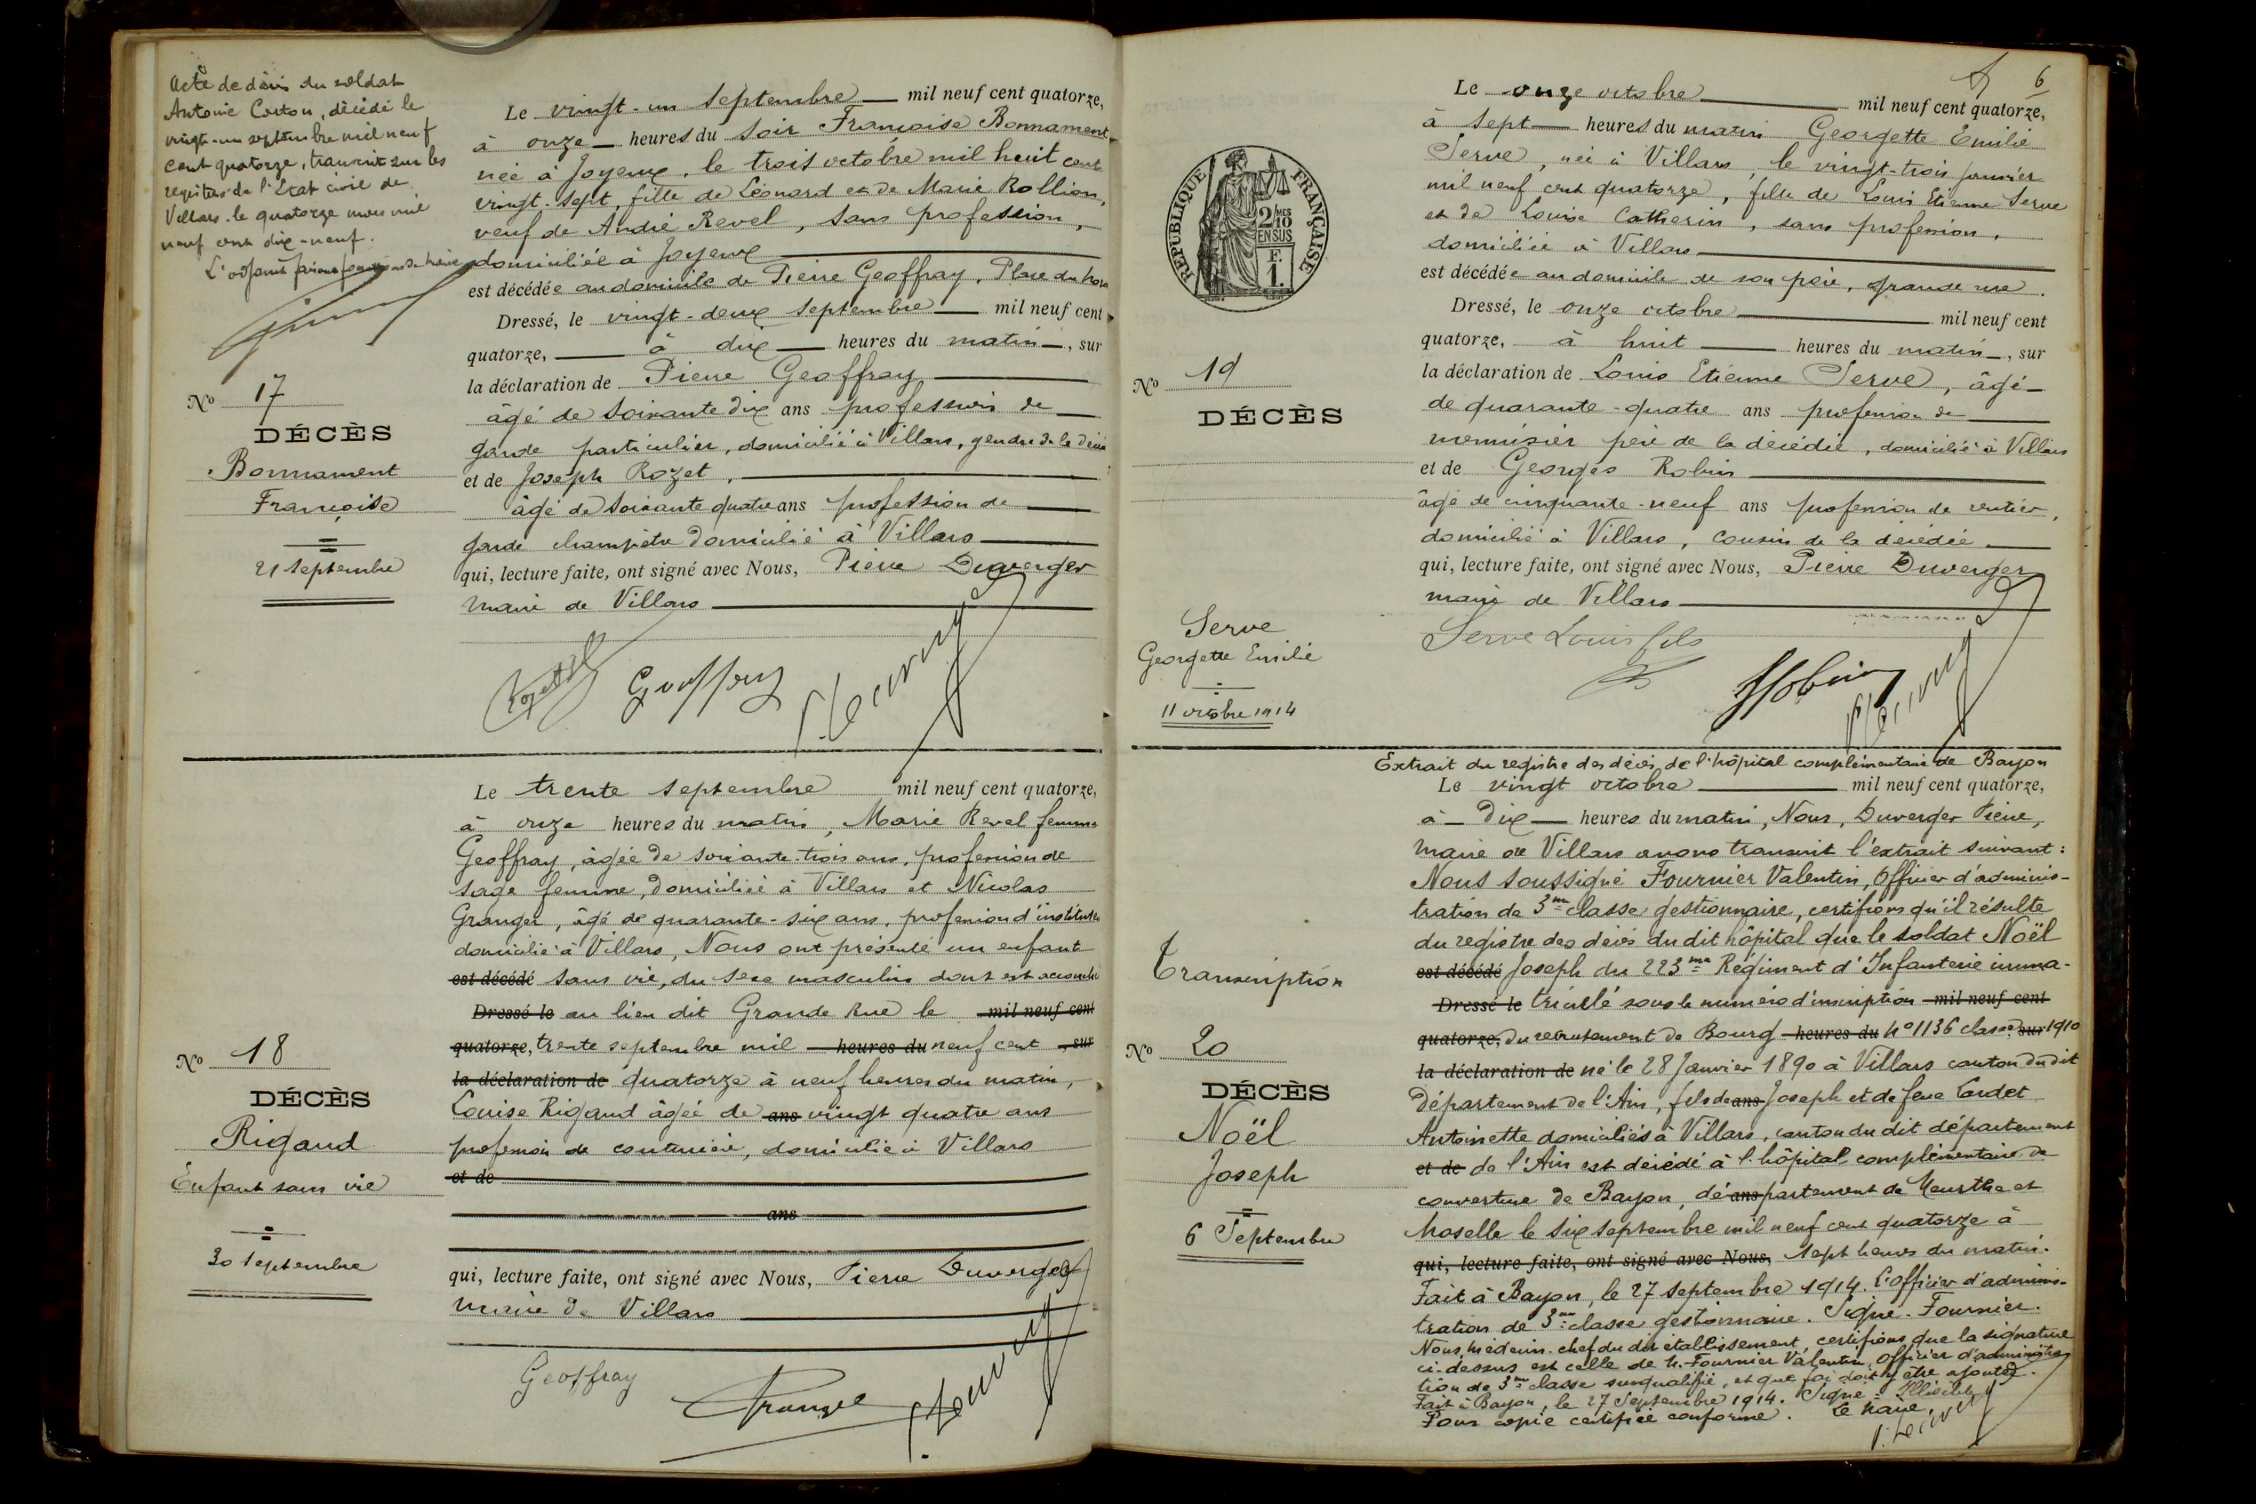 Acte de décès du soldat
Antoine Couton, décédé le
vingt-un septembre mil neuf
cent quatorze, transcrit sur les
registres de l'Etat civil de
Villars le quatorze mars mil
neuf cent dix-neuf.
L'adjoint faisant fonctions de maire
N° 17
DÉCÈS
Bonnament
Françoise
21 septembre
Le vingt-un septembre mil neuf cent quatorze,
à onze heures du soir Françoise Bonnament,
née à Joyeux, le trois octobre mil huit cent
vingt-sept, fille de Léonard et de Marie Rollion,
veuf de André Revel, sans profession,
domiciliée à Joyeux
est décédée au domicile de Pierre Geoffray, Place du
Dressé, le vingt-deux septembre mil neuf cent
quatorze, à dix heures du matin, sur
la déclaration de Pierre Geoffray
âgé de soixante dix ans profession de
garde particulier, domicilié à Villars, gendre de la
et de Joseph Rozet,
âgé de soixante quatre ans profession de
garde champêtre domicilié à Villars
qui, lecture faite, ont signé avec Nous, Pierre Duverger
maire de Villars
Rozet Geoffray P. Duverger
N° 18
DÉCÈS
Rigaud
Enfant sans vie
30 septembre
Le trente septembre mil neuf cent quatorze,
à onze heures du matin, Marie Revel femme
Geoffray, âgée de soixante-trois ans, profession de
sage femme, domiciliée à Villars et Nicolas
Granger, âgé de quarante-six ans, profession d'instituteur
domicilié à Villars, Nous ont présenté un enfant
est décédé sans vie, du sexe masculin dont est accouchée
Dressé le au lieu dit Grande Rue le mil neuf cent
quatorze, trente septembre mil heures du neuf cent , sur
la déclaration de quatorze à neuf heures du matin,
Louise Rigaud âgée de ans vingt quatre ans
profession de couturière, domiciliée à Villars
et de
ans
qui, lecture faite, ont signé avec Nous, Pierre Duverger
maire de Villars
Geoffray Granger P. Duverger
6
RÉPUBLIQUE FRANÇAISE
2/10 MES
EN SUS
F.
1.
N° 19
DÉCÈS
Serve
Georgette Emilie
11 octobre 1914
Le onze octobre mil neuf cent quatorze,
à sept heures du matin Georgette Emilie
Serve, née à Villars, le vingt-trois janvier
mil neuf cent quatorze, fille de Louis Etienne Serve
et de Louise Catherin, sans profession,
domiciliée à Villars
est décédée au domicile de son père, grande rue.
Dressé, le onze octobre mil neuf cent
quatorze, à huit heures du matin, sur
la déclaration de Louis Etienne Serve, âgé
de quarante-quatre ans profession de
menuisier père de la décédée, domicilié à Villars
et de Georges Robin
âgé de cinquante-neuf ans profession de rentier,
domicilié à Villars, cousin de la décédée
qui, lecture faite, ont signé avec Nous, Pierre Duverger
maire de Villars
Serve Louis fils Robin P. Duverger
Transcription
N° 20
DÉCÈS
Noël
Joseph
6 Septembre
Extrait du registre des décès de l'hôpital complémentaire de Bayon
Le vingt octobre mil neuf cent quatorze,
à Dix heures du matin, Nous, Duverger Pierre,
maire de Villars avons transcrit l'extrait suivant :
Nous soussigné Fournier Valentin, Officier d'adminis-
tration de 3me classe gestionnaire, certifions qu'il résulte
du registre des décès du dit hôpital que le soldat Noël
est décédé Joseph du 223me Régiment d'Infanterie imma-
Dressé le triculé sous le numéro d'inscription mil neuf cent
quatorze, du recrutement de Bourg heures du n° 1136 classe sur 1910
la déclaration de né le 28 Janvier 1890 à Villars canton du dit
Département de l'Ain, fils de ans Joseph et de feue Cardet
Antoinette domiciliés à Villars, canton du dit département
et de de l'Ain est décédé à l'hôpital complémentaire de
couverture de Bayon, dé ans partement de Meurthe et
Moselle le six septembre mil neuf cent quatorze à
qui, lecture faite, ont signé avec Nous, sept heures du matin.
Fait à Bayon, le 27 septembre 1914. L'officier d'adminis-
tration de 3me classe gestionnaire. Signé. Fournier.
Nous, médecin-chef du dit établissement, certifions que la signature
ci-dessus est celle de M. Fournier Valentin, Officier d'administra
tion de 3me classe susqualifié, et que foi doit y être ajoutée.
Fait à Bayon, le 27 Septembre 1914. Signé = Illisible
Pour copie certifiée conforme. Le Maire,
P. Duverger